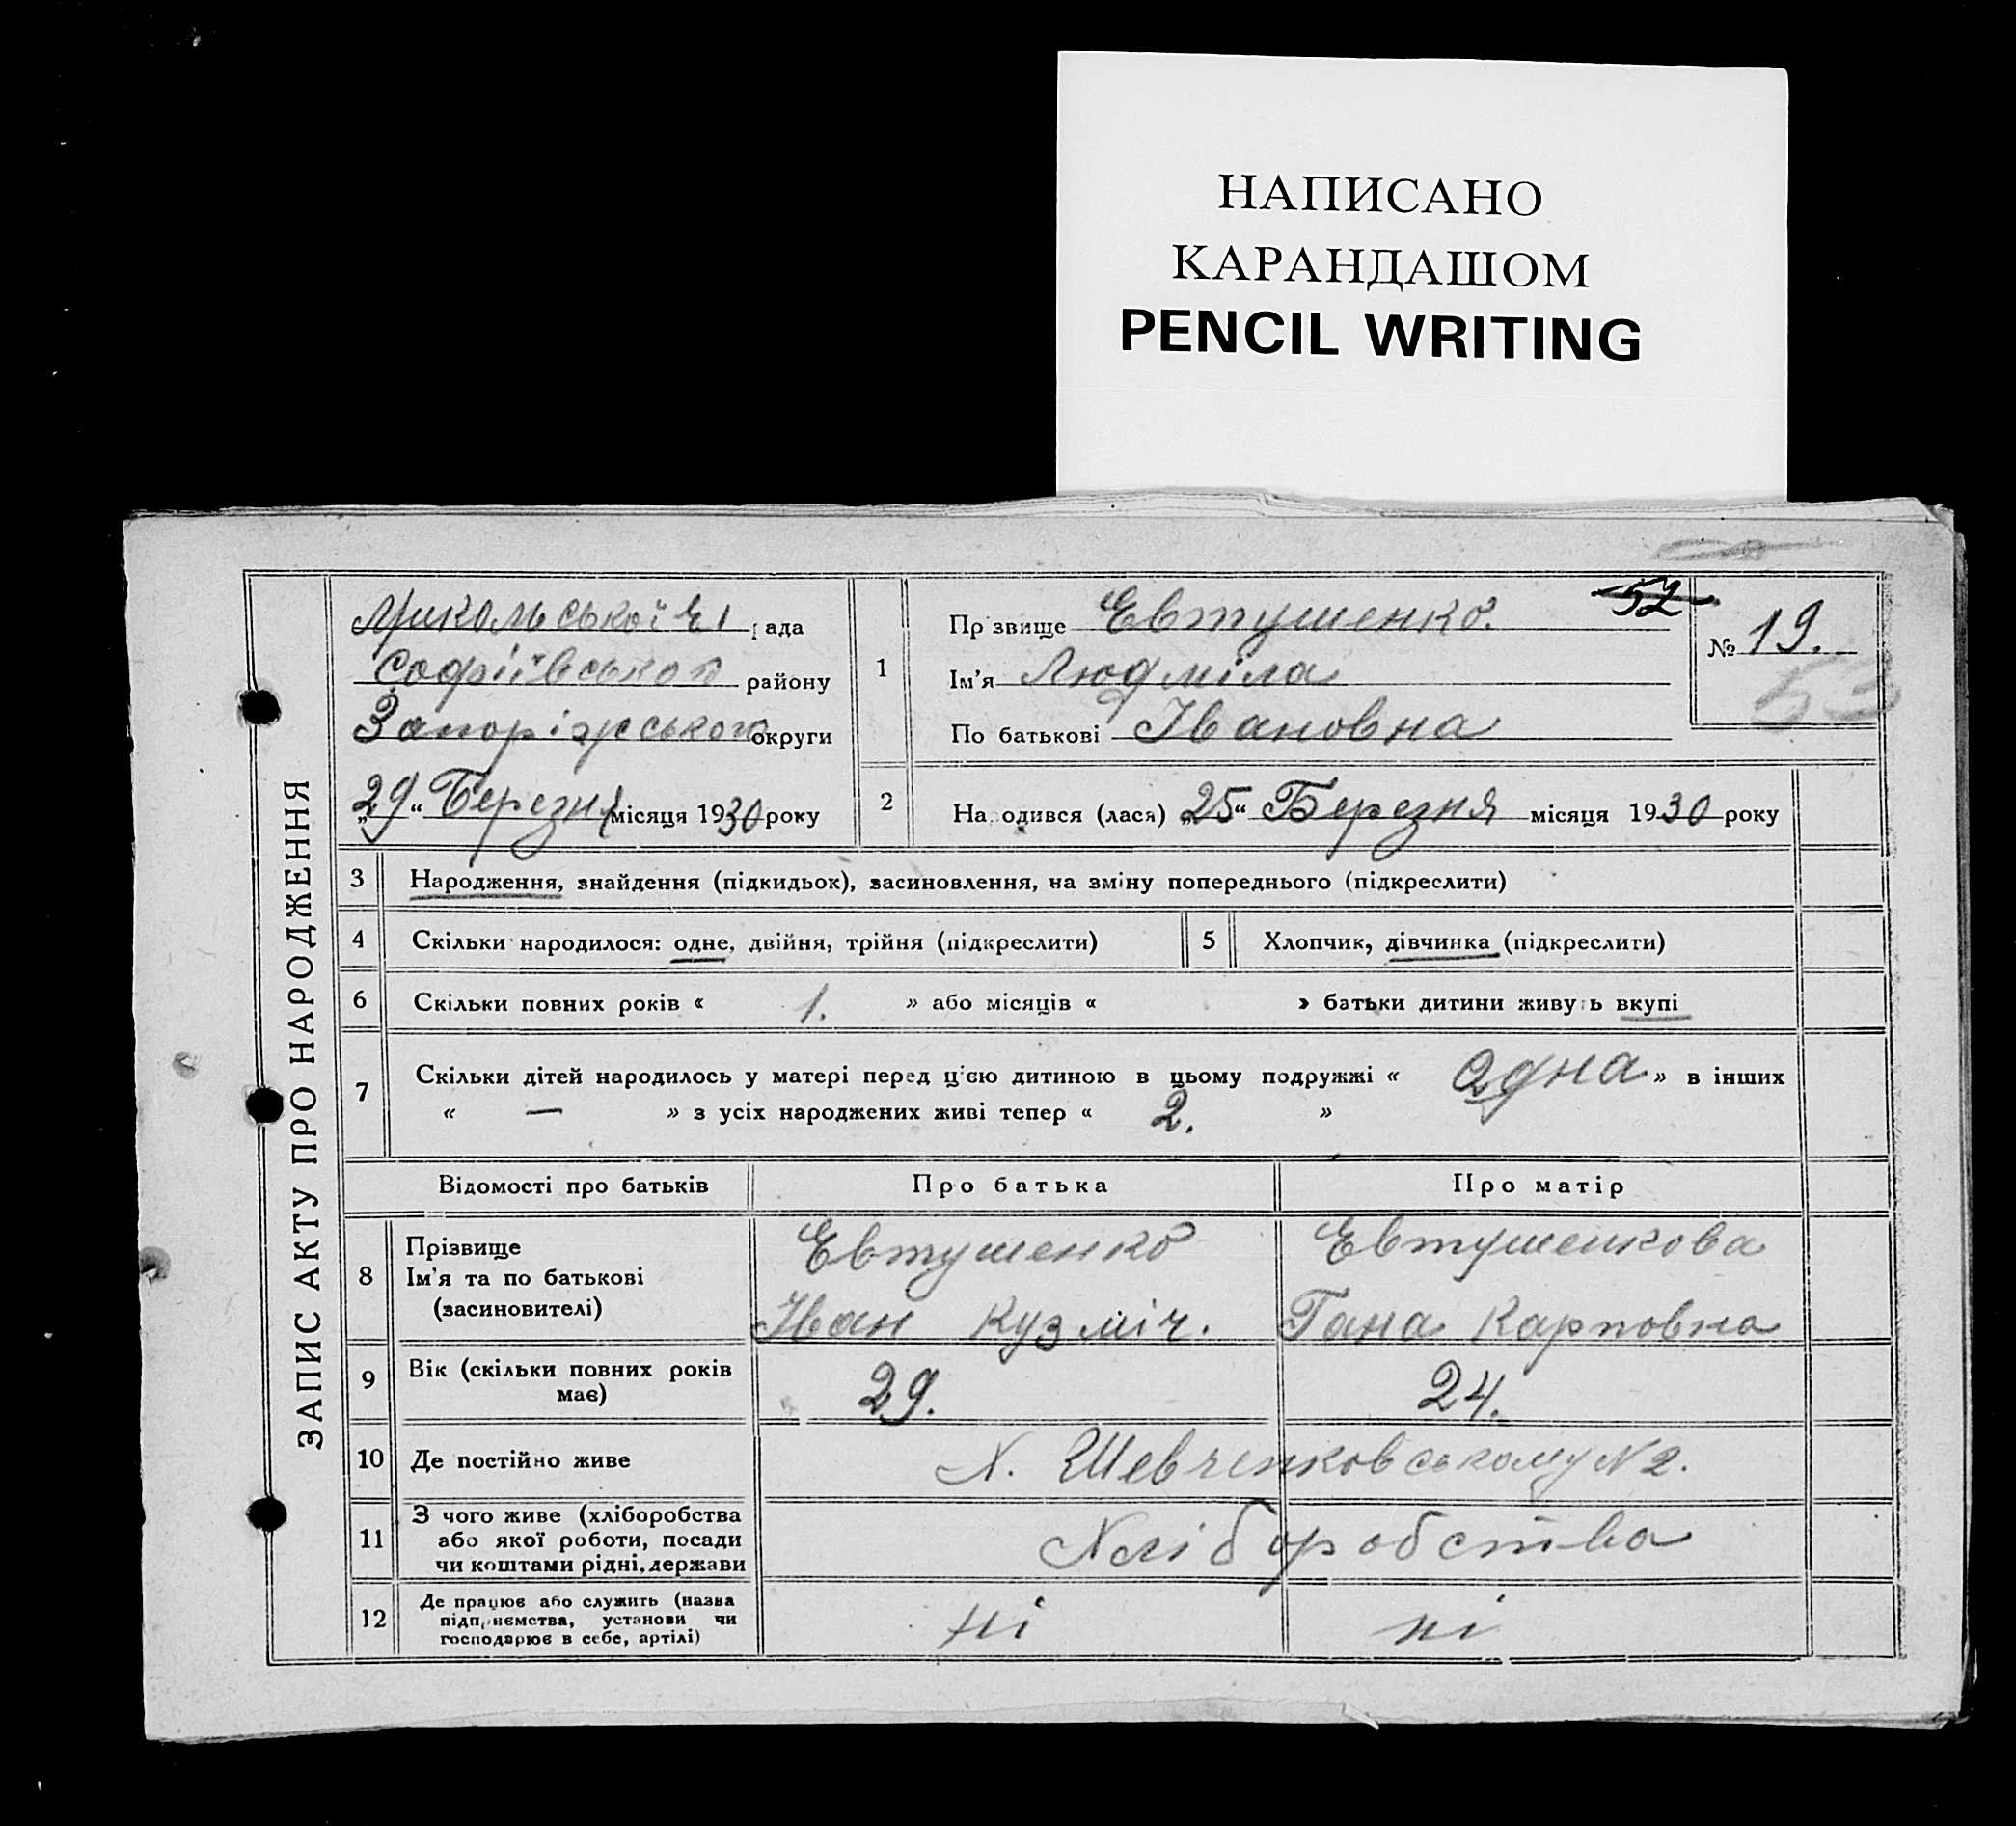 НАПИСАНО
КАРАНДАШОМ
PENCIL WRITING
ЗАПИС АКТУ ПРО НАРОДЖЕННЯ
рада
Софіївського району
Запоріжського округи
„29“ Березня місяця 1930 року
1
Прізвище Евтушенко.
52
№ 19.
53
Ім'я Людміла
По батькові Івановна
2 Народився (лася) „25“ Березня місяця 1930 року
3 Народження, знайдення (підкидьок), засиновлення, на зміну попереднього (підкреслити)
4 Скільки народилося: одне, двійня, трійня (підкреслити) 5 Хлопчик, дівчинка (підкреслити)
6 Скільки повних років « 1. » або місяців « » батьки дитини живуть вкупі
7 Скільки дітей народилось у матері перед ц'єю дитиною в цьому подружжі « одна » в інших
« — » з усіх народжених живі тепер « 2. »
Відомості про батьків Про батька Про матір
8 Прізвище Евтушенко Евтушенкова
Ім'я та по батькові
(засиновителі) Іван Кузміч. Гана Карповна
9 Вік (скільки повних років має) 29. 24.
10 Де постійно живе Х. Шевченковському №2.
11 З чого живе (хліборобства
або якої роботи, посади Хліборобства
чи коштами рідні, держави
12 Де працює або служить (назва
підприємства, установи чи ні ні
господарює в себе, артілі)